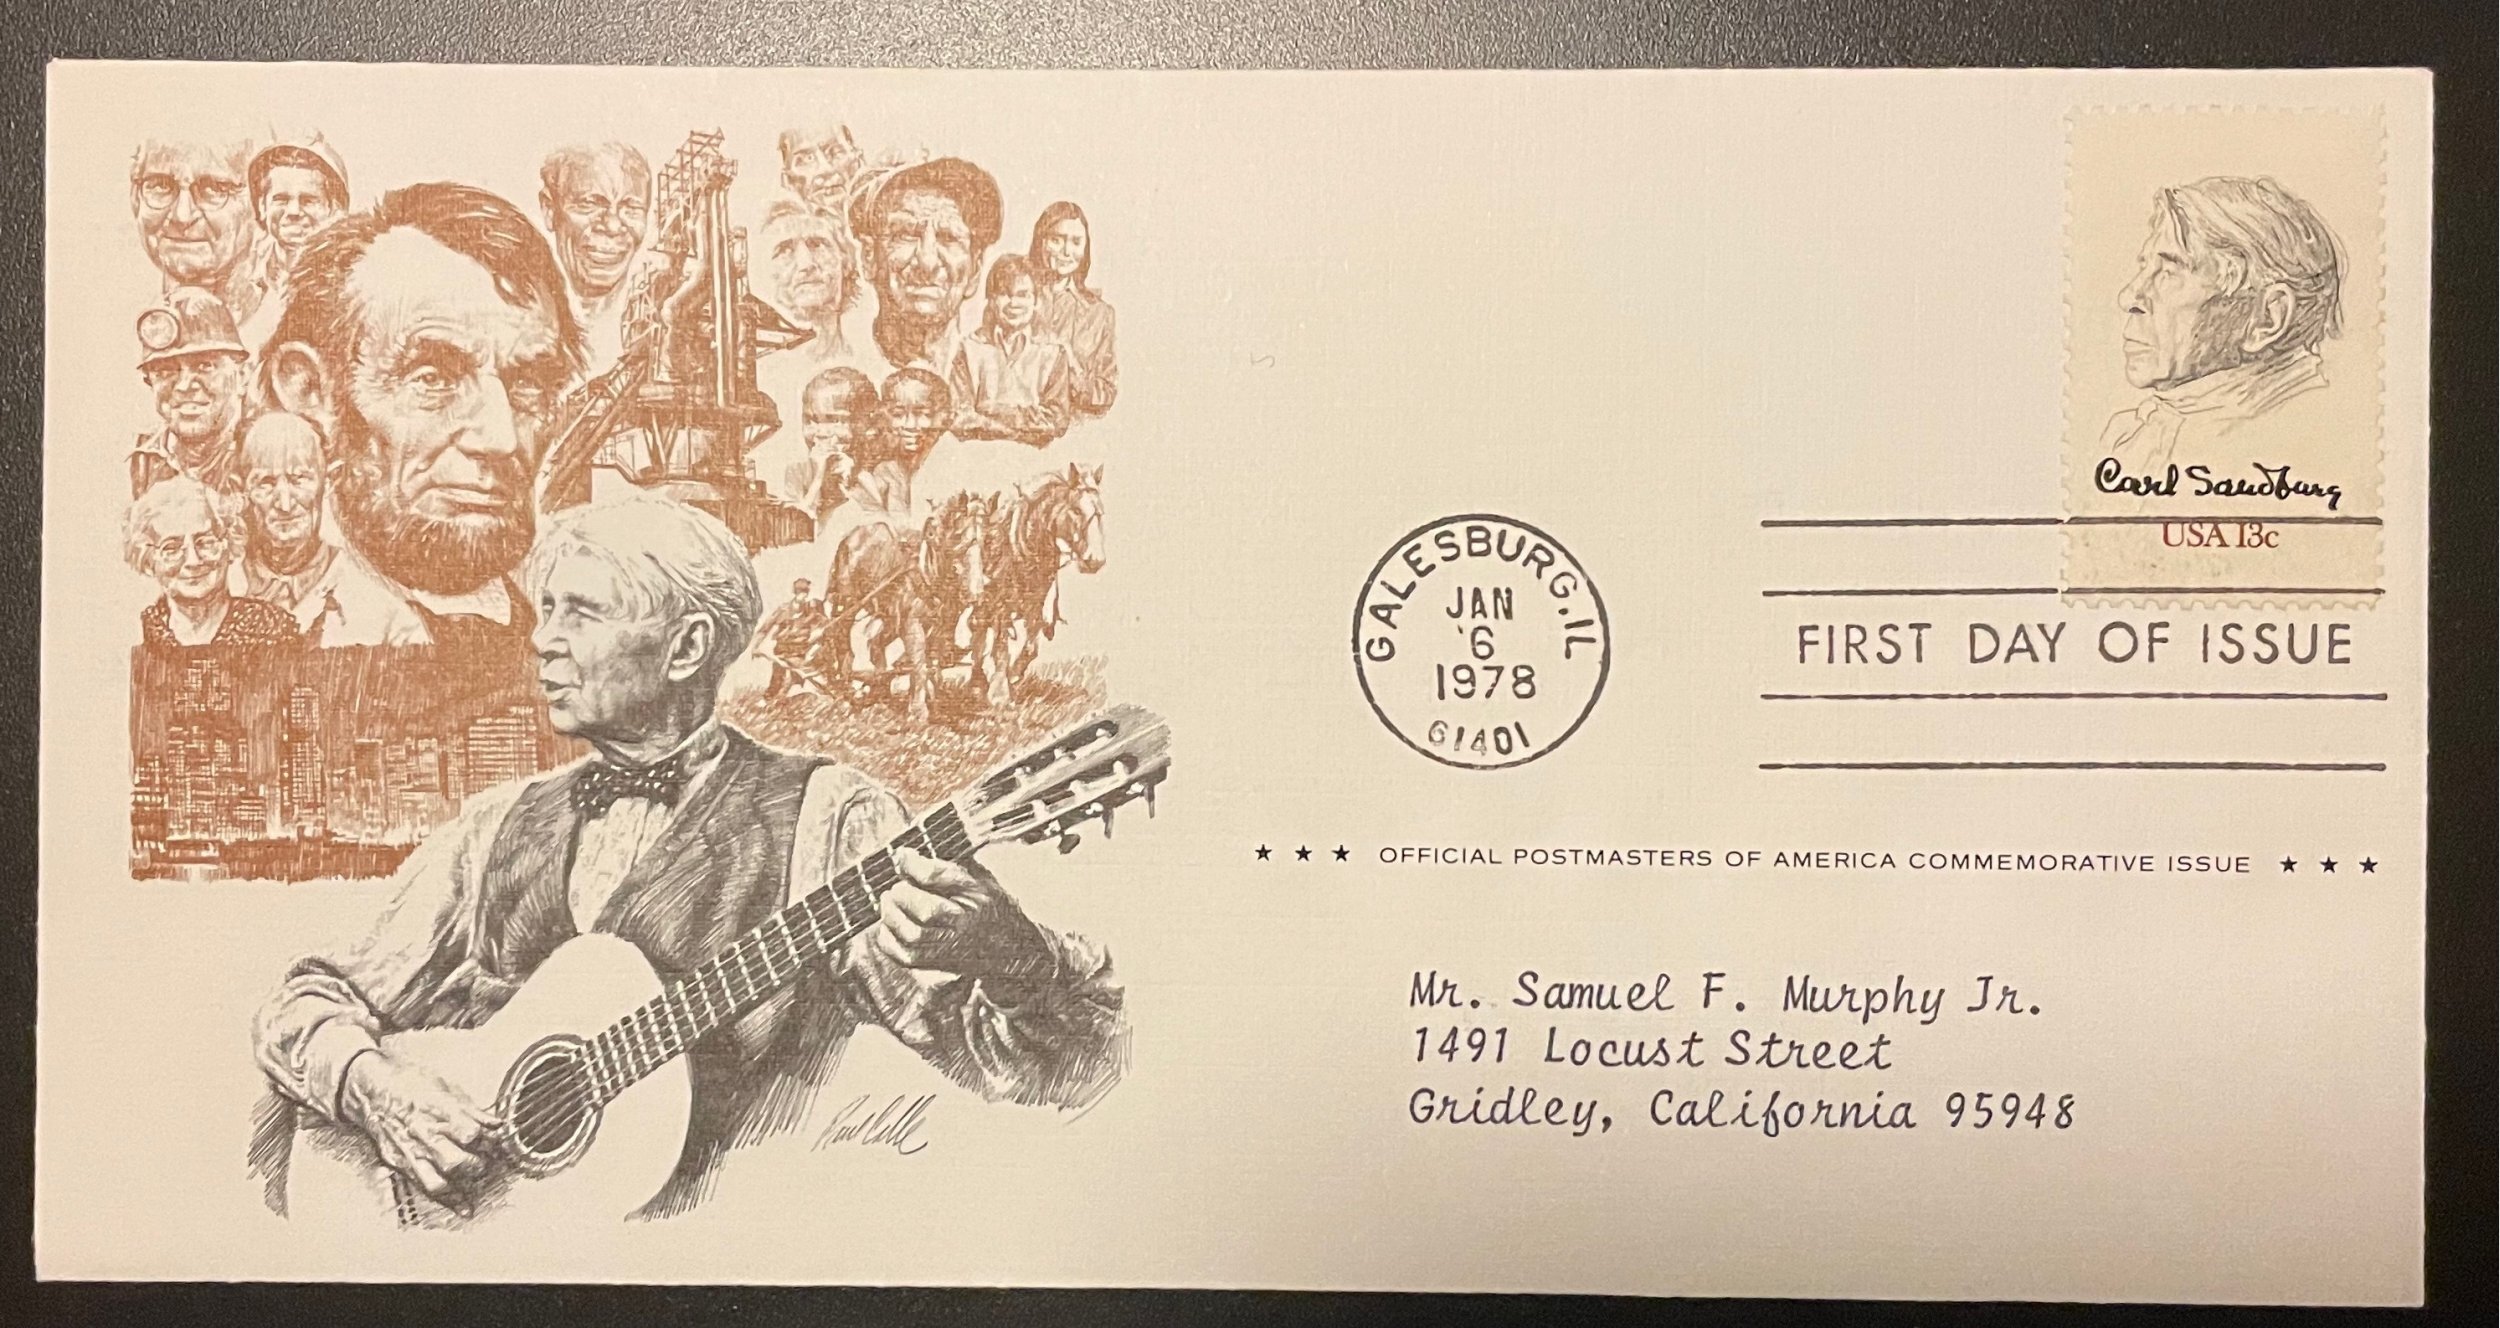 Carl Sandburg
USA 13c
GALESBURG, IL
JAN
6
1978
61401
FIRST DAY OF ISSUE
★ ★ ★ OFFICIAL POSTMASTERS OF AMERICA COMMEMORATIVE ISSUE ★ ★ ★
Mr. Samuel F. Murphy Jr.
1491 Locust Street
Gridley, California 95948
Paul Calle